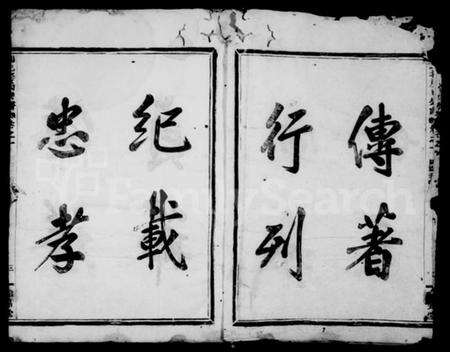 傳著
行列
紀載
忠孝
FamilySearch